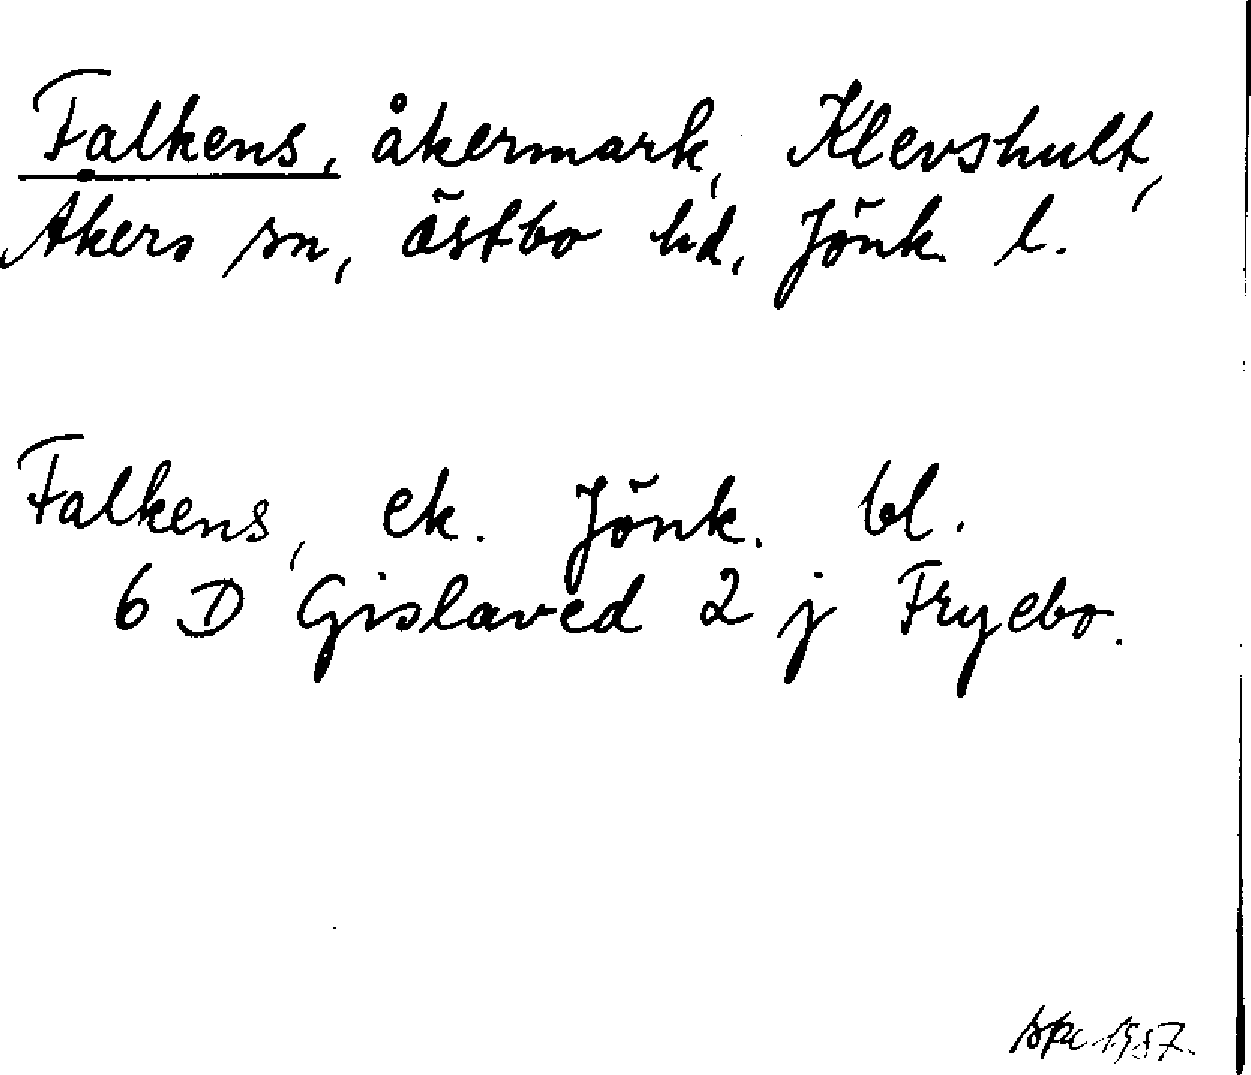 Falkens, åkermark, Klevshult,
Åkers sn, Östbo hd, Jönk. l.
Falkens, ek. Jönk. bl.
6 D Gislaved 2 j Fryebo.
1987.